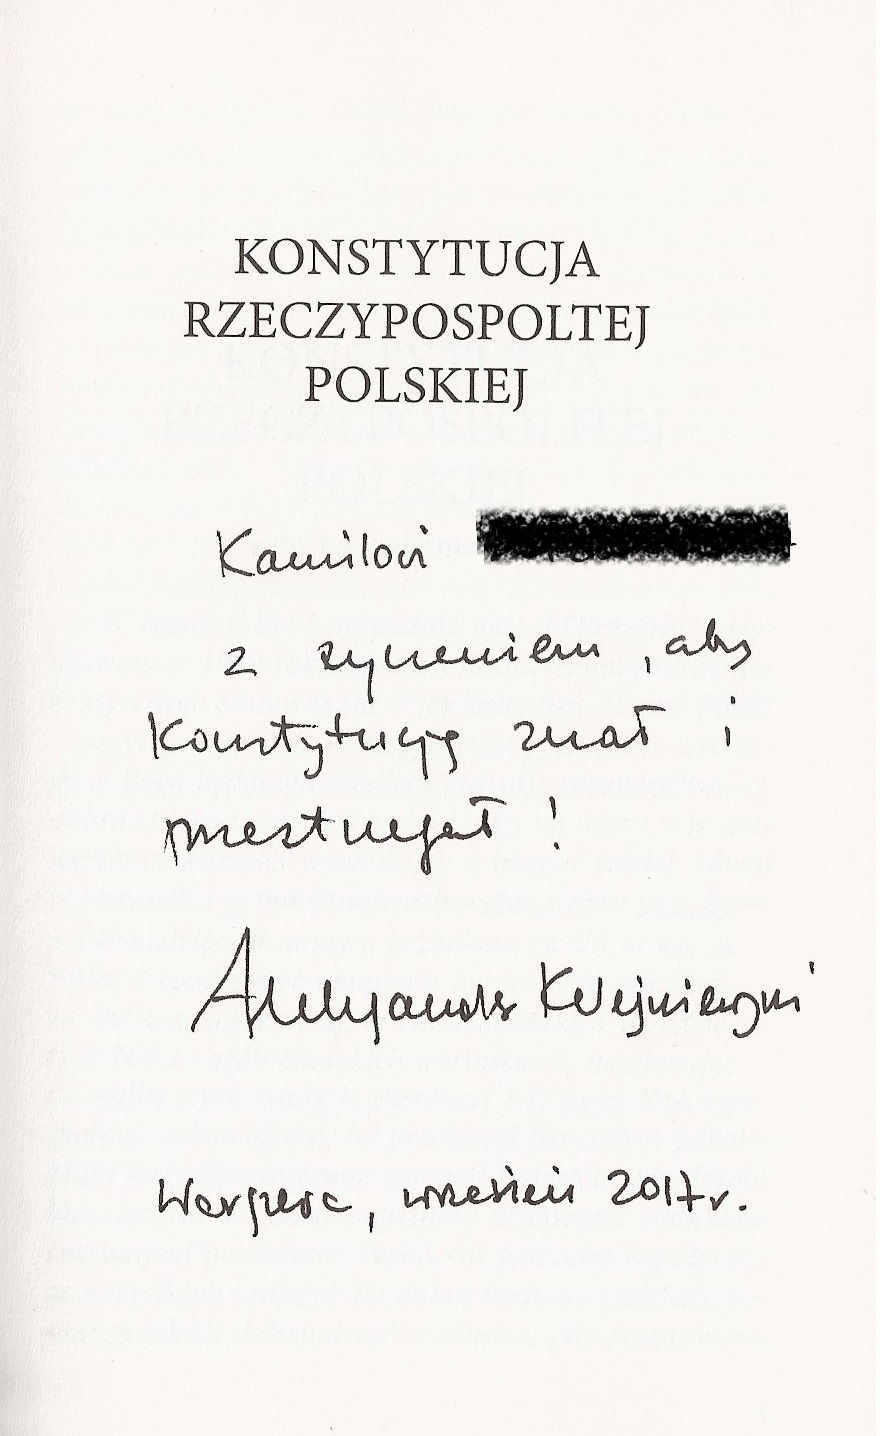 KONSTYTUCJA
RZECZYPOSPOLTEJ
POLSKIEJ
Kamilowi
z życzeniem, aby
Konstytucję znał i
przestrzegał!
Aleksander Kwaśniewski
Warszawa, wrzesień 2017 r.